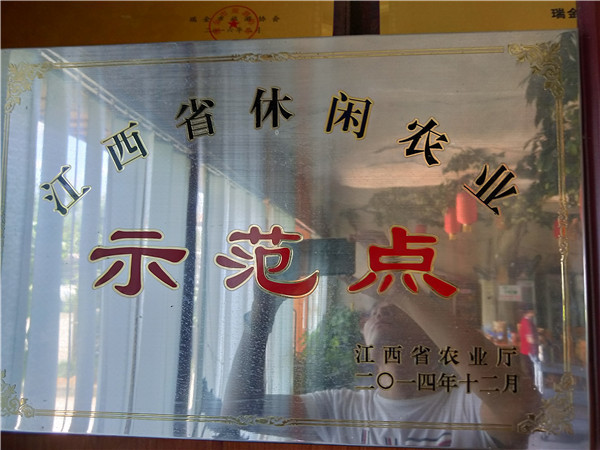 瑞金
江西省休闲农业
示范点
江西省农业厅
二〇一四年十二月